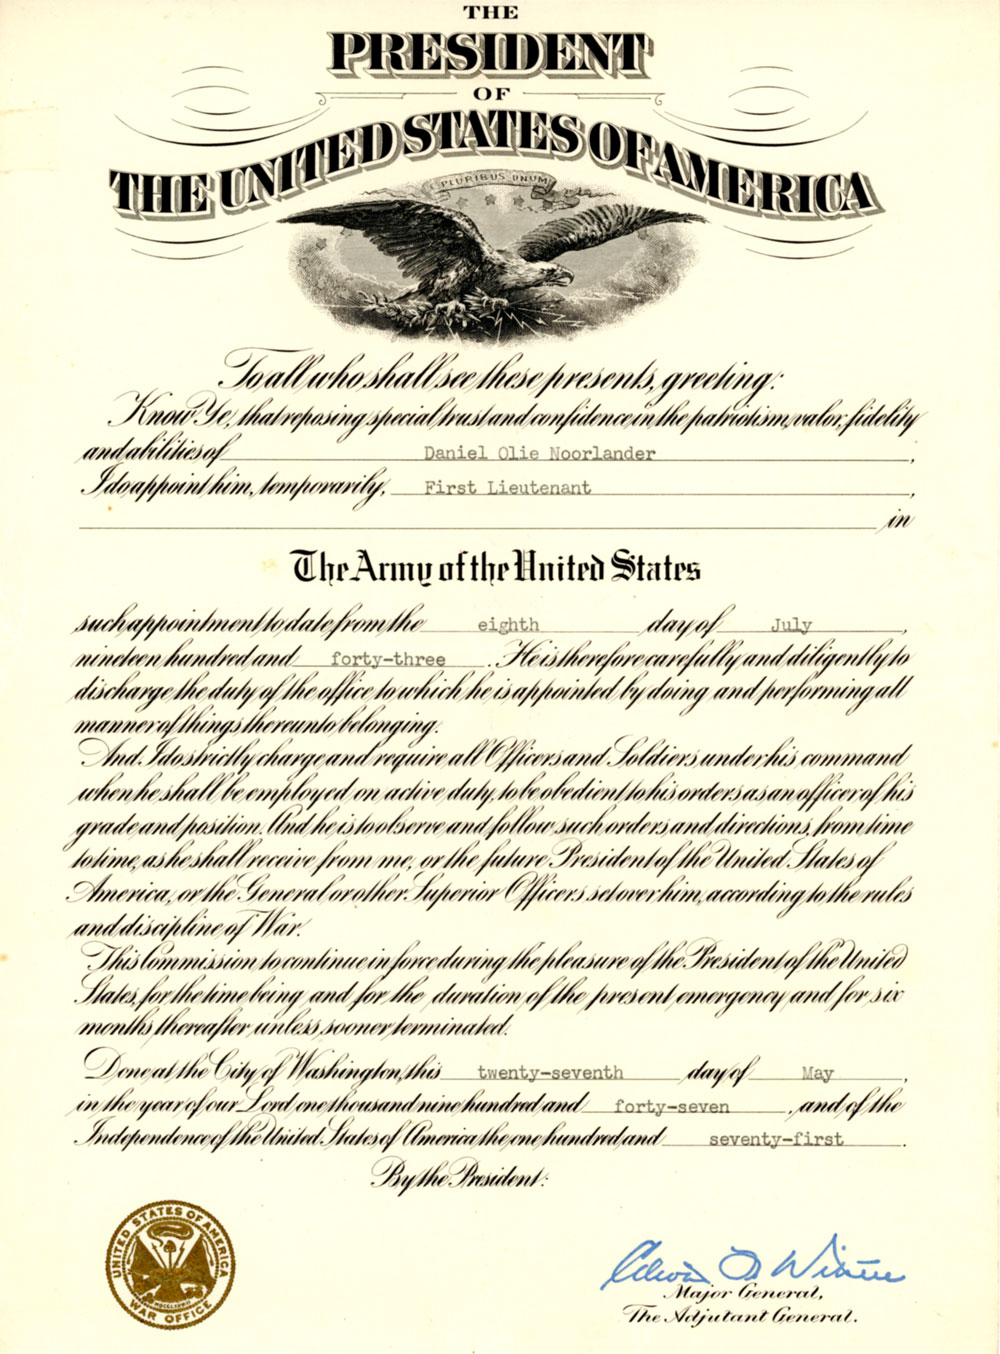 THE
PRESIDENT
OF
THE UNITED STATES OF AMERICA
E PLURIBUS UNUM
To all who shall see these presents, greeting:
Know Ye, that reposing special trust and confidence in the patriotism, valor, fidelity
and abilities of Daniel Olie Noorlander,
I do appoint him, temporarily, First Lieutenant,
in
The Army of the United States
such appointment to date from the eighth day of July,
nineteen hundred and forty-three. He is therefore carefully and diligently to
discharge the duty of the office to which he is appointed by doing and performing all
manner of things thereunto belonging.
And I do strictly charge and require all Officers and Soldiers under his command
when he shall be employed on active duty, to be obedient to his orders as an officer of his
grade and position. And he is to observe and follow such orders and directions, from time
to time, as he shall receive from me, or the future President of the United States of
America, or the General or other Superior Officers set over him, according to the rules
and discipline of War.
This Commission to continue in force during the pleasure of the President of the United
States, for the time being, and for the duration of the present emergency and for six
months thereafter unless sooner terminated.
Done at the City of Washington, this twenty-seventh day of May,
in the year of our Lord one thousand nine hundred and forty-seven, and of the
Independence of the United States of America the one hundred and seventy-first.
By the President:
UNITED STATES OF AMERICA
MDCCLXXVIII
WAR OFFICE
Major General,
The Adjutant General.